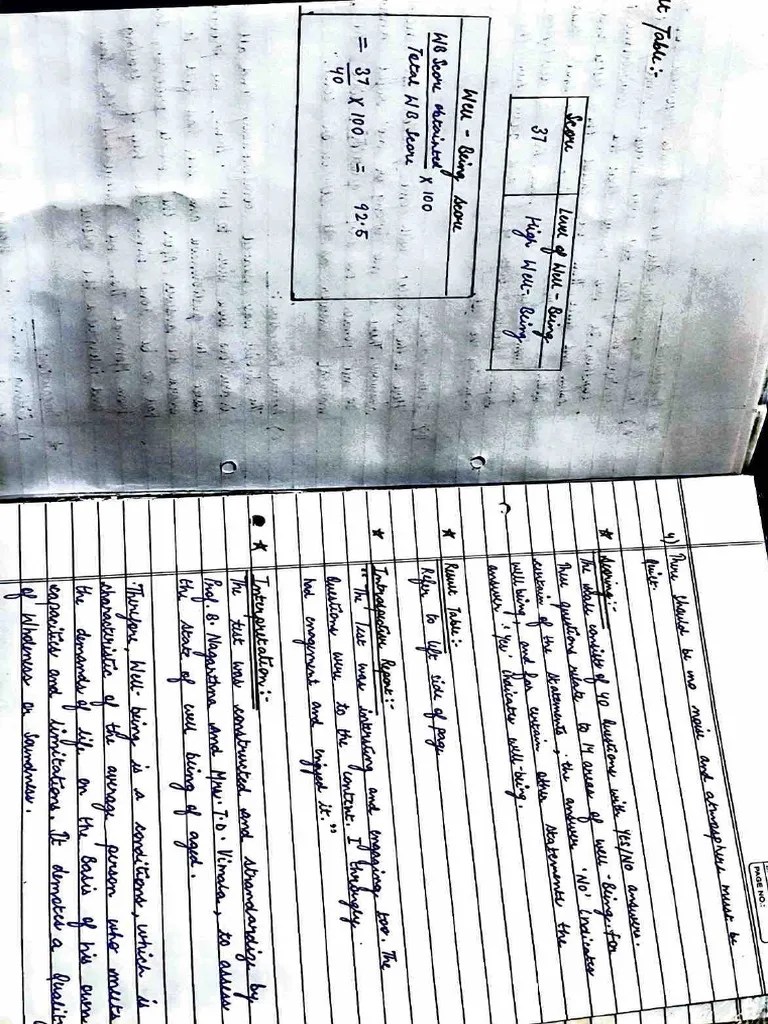 Table:-
Score
Level of Well-Being
37
High Well-Being
Well-Being Score
WB Score obtainted
Total WB Score
X 100
= 37
40
X 100 = 92.5
PAGE NO.:
4) There should be no noise and atmosphere must be
quiet.
* Scoring:-
The scale consists of 40 Questions with YES/NO answers.
These questions relate to 14 areas of well-Being. For
certain of the statements, the answer 'No' indicates
well being, and for certain other statements the
answer 'Yes' indicates well-being.
* Result Table:-
Refer to left side of page
* Introspection Report:-
"The Test was intersting and engaging too. The
Questions were to the content. I throughly
had engagement and enjoyed it."
* Interpretation:-
The test was constructed and strandardize by
Prof. B. Nagarthna and Mrs. T.D. Vimala, to assess
the state of well being of aged.
Therefore, Well-being is a conditions, which is
characteristic of the average person who meets
the demands of life on the Basis of his own
capacities and limitations. It denotes a Qualit
of Wholeness or Soundness.